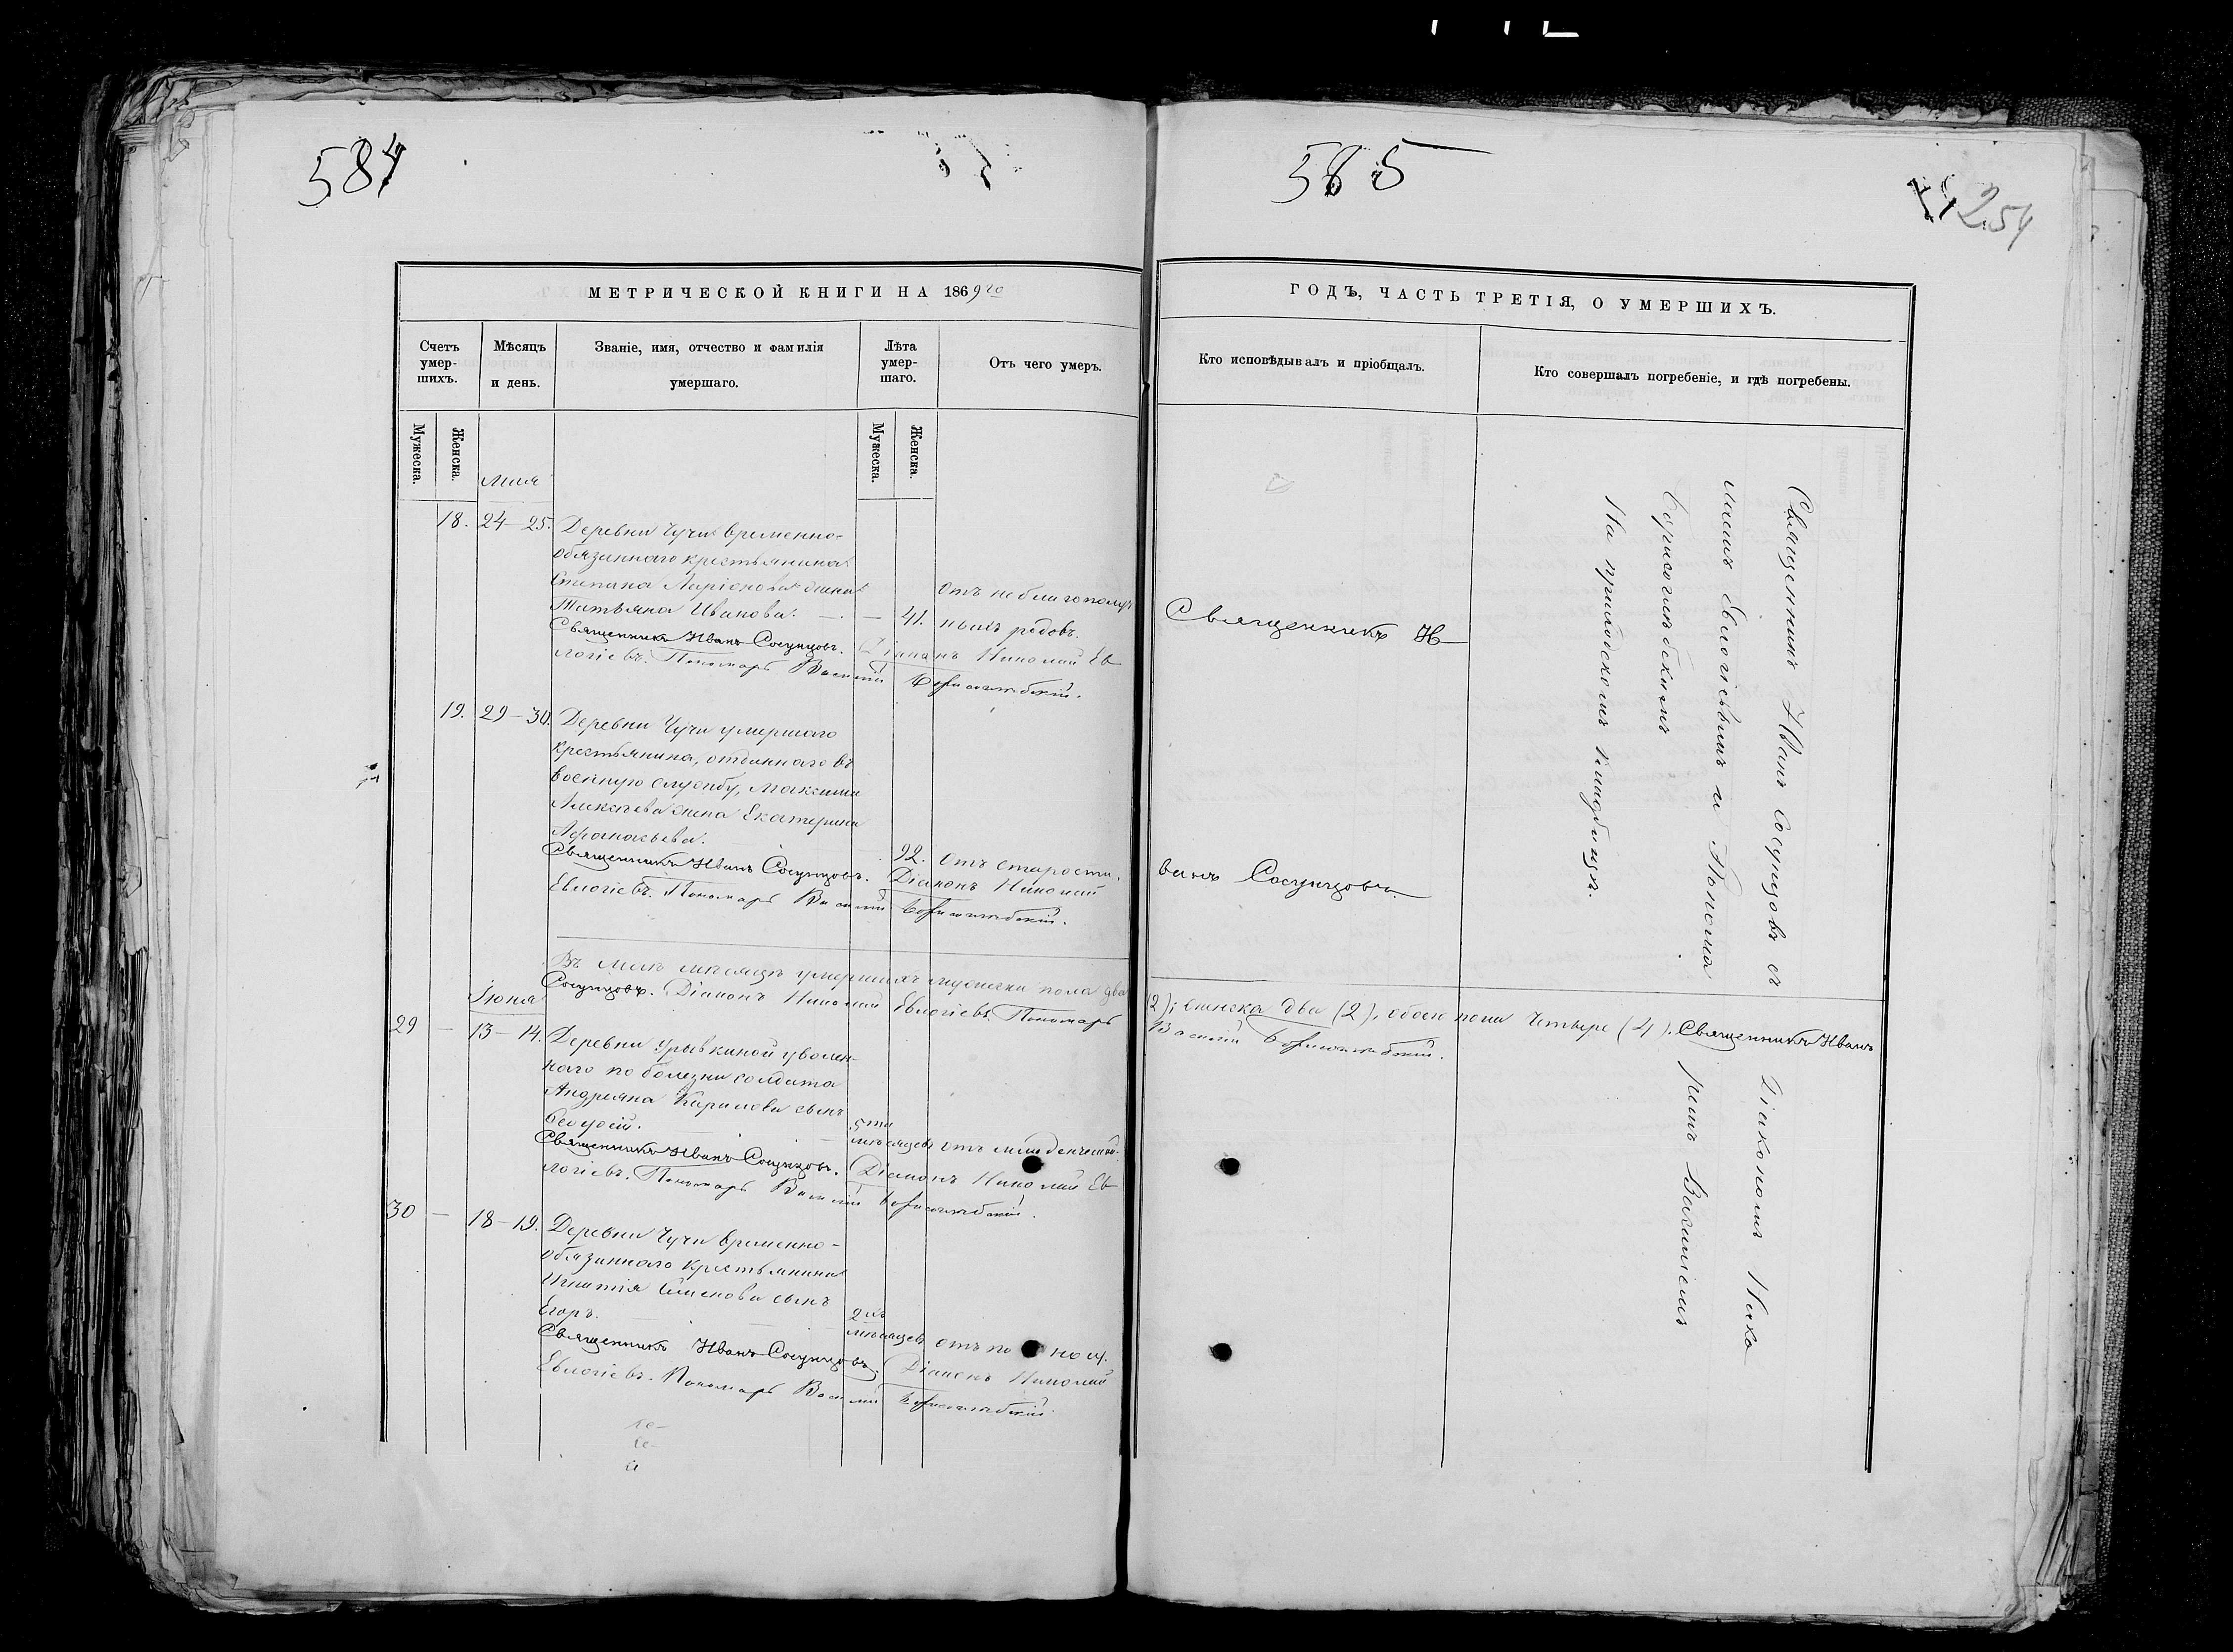 584
585
254
МЕТРИЧЕСКОЙ КНИГИ НА 1869го
ГОДЪ, ЧАСТЬ ТРЕТІЯ, О УМЕРШИХЪ.
Счетъ умер-шихъ.
Мѣсяцъ и день.
Званіе, имя, отчество и фамилія умершаго.
Лѣта умер-шаго.
Отъ чего умеръ.
Кто исповѣдывалъ и пріобщалъ.
Кто совершалъ погребеніе, и гдѣ погребены.
Мужеска.
Женска.
Мужеска.
Женска.
Мая
18. 24–25. Деревни Чучи временно-
обязаннаго крестьянина
Степана Ларіонова жена
Татьяна Иванова. — 41. отъ неблагополуч
ныхъ родовъ.
Священникъ Иванъ Сосунцовъ. Діаконъ Николай Ев
логіевъ. Пономарь Василій Борисоглѣбскій.
19. 29–30. Деревни Чучи умершаго
крестьянина, отданнаго въ
военную службу, Максима
Алексѣева жена Екатерина
Афанасьева. 92. отъ старости.
Священникъ Иванъ Сосунцовъ. Діаконъ Николай
Евлогіевъ. Пономарь Василій Борисоглѣбскій.
Священникъ И
ванъ Сосунцовъ.
Священникъ Иванъ Сосунцовъ съ
Борисоглѣбскимъ
На приходскомъ кладбищѣ.
Въ маѣ мѣсяцѣ умершихъ мужеска пола два (2); женска два (2), обоего пола четыре (4). Священникъ Иванъ
Сосунцовъ. Діаконъ Николай Евлогіевъ. Пономарь Василій Борисоглѣбскій.
Іюня
29 — 13–14. Деревни Урывкиной уволен-
наго по болезни солдата
Андреяна Кирилова сынъ
Ѳеодосій. — 5ти
мѣсяцевъ отъ младенческой.
Священникъ Иванъ Сосунцовъ. Діаконъ Николай Ев
логіевъ. Пономарь Василій Борисоглѣбскій.
30 — 18–19. Деревни Чучи временно-
обязаннаго крестьянина
Игнатія Семенова сынъ
Егоръ. — 2хъ
мѣсяцевъ отъ
Священникъ Иванъ Сосунцовъ. Діаконъ Николай
Евлогіевъ. Пономарь Василій Борисоглѣбскій.
Діакономъ Нико
лаемъ Евлогіевымъ и Понома
ремъ Василіемъ